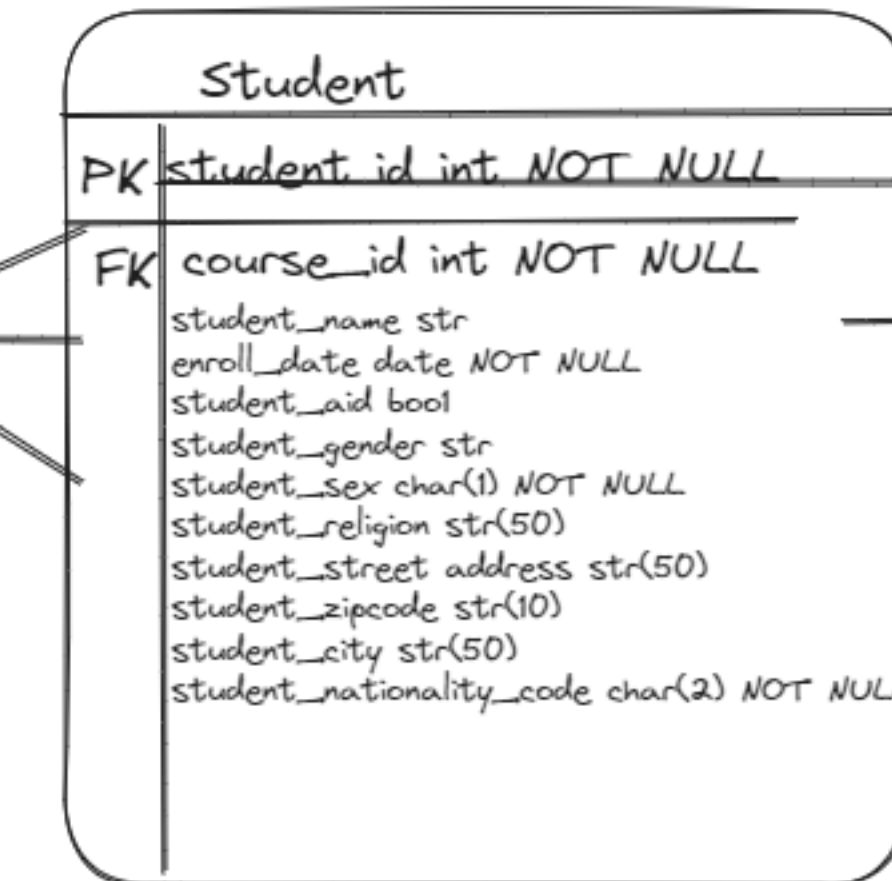 Student
PK student_id int NOT NULL
FK course_id int NOT NULL
student_name str
enroll_date date NOT NULL
student_aid bool
student_gender str
student_sex char(1) NOT NULL
student_religion str(50)
student_street address str(50)
student_zipcode str(10)
student_city str(50)
student_nationality_code char(2) NOT NUL